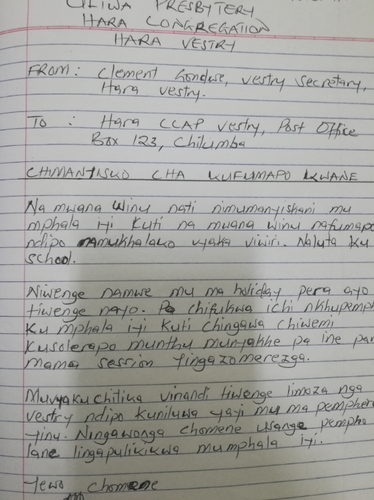 PRESBYTERY
HARA CONGREGATION
HARA VESTRY
FROM: Clement Gondwe, vestry secretary,
Hara vestry.
TO : Hara CCAP vestry, Post Office
Box 123, Chilumba
CHIMANYISKO CHA KUFUMAPO KWANE
Na mwana winu nati nimumanyishani mu
mphala iyi kuti na mwana winu nafumapo
ndipo namukhalako vyaka viwiri. Naluta ku
school.
Niwenge namwe mu ma holiday pera ayo
tiwenge nayo. chifukwa ichi nkhupemph
ku mphala iyi kuti chingawa chiwemi
kusolerapo munthu munyakhe pa ine par
mama session yingazomerezga.
Muvyakuchitika vinandi tiwenge limoza nga
vestry ndipo kuniluwa yayi mu ma pempher
yinu. Ningawonga chomene usange pempho
lane lingapulikikwa mumphala iyi.
Yewo chomene